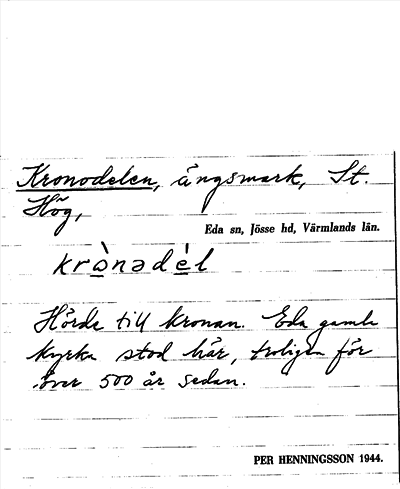 Kronodelen, ängsmark, St.
Hög,
Eda sn, Jösse hd, Värmlands län.
krònədél
Hörde till kronan. Eda gamla
kyrka stod här, troligen för
över 500 år sedan.
PER HENNINGSSON 1944.